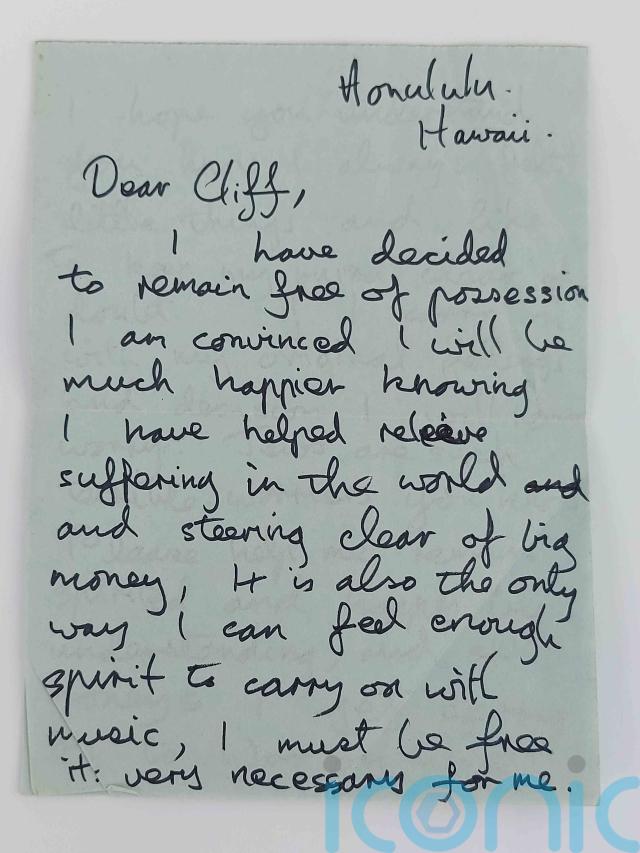 Honululu.
Hawaii.
Dear Cliff,
I have decided
to remain free of possession
I am convinced I will be
much happier knowing
I have helped releive
suffering in the world and
and steering clear of big
money, It is also the only
way I can feel enough
spirit to carry on with
music, I must be free
it: very necessary for me.
iconic